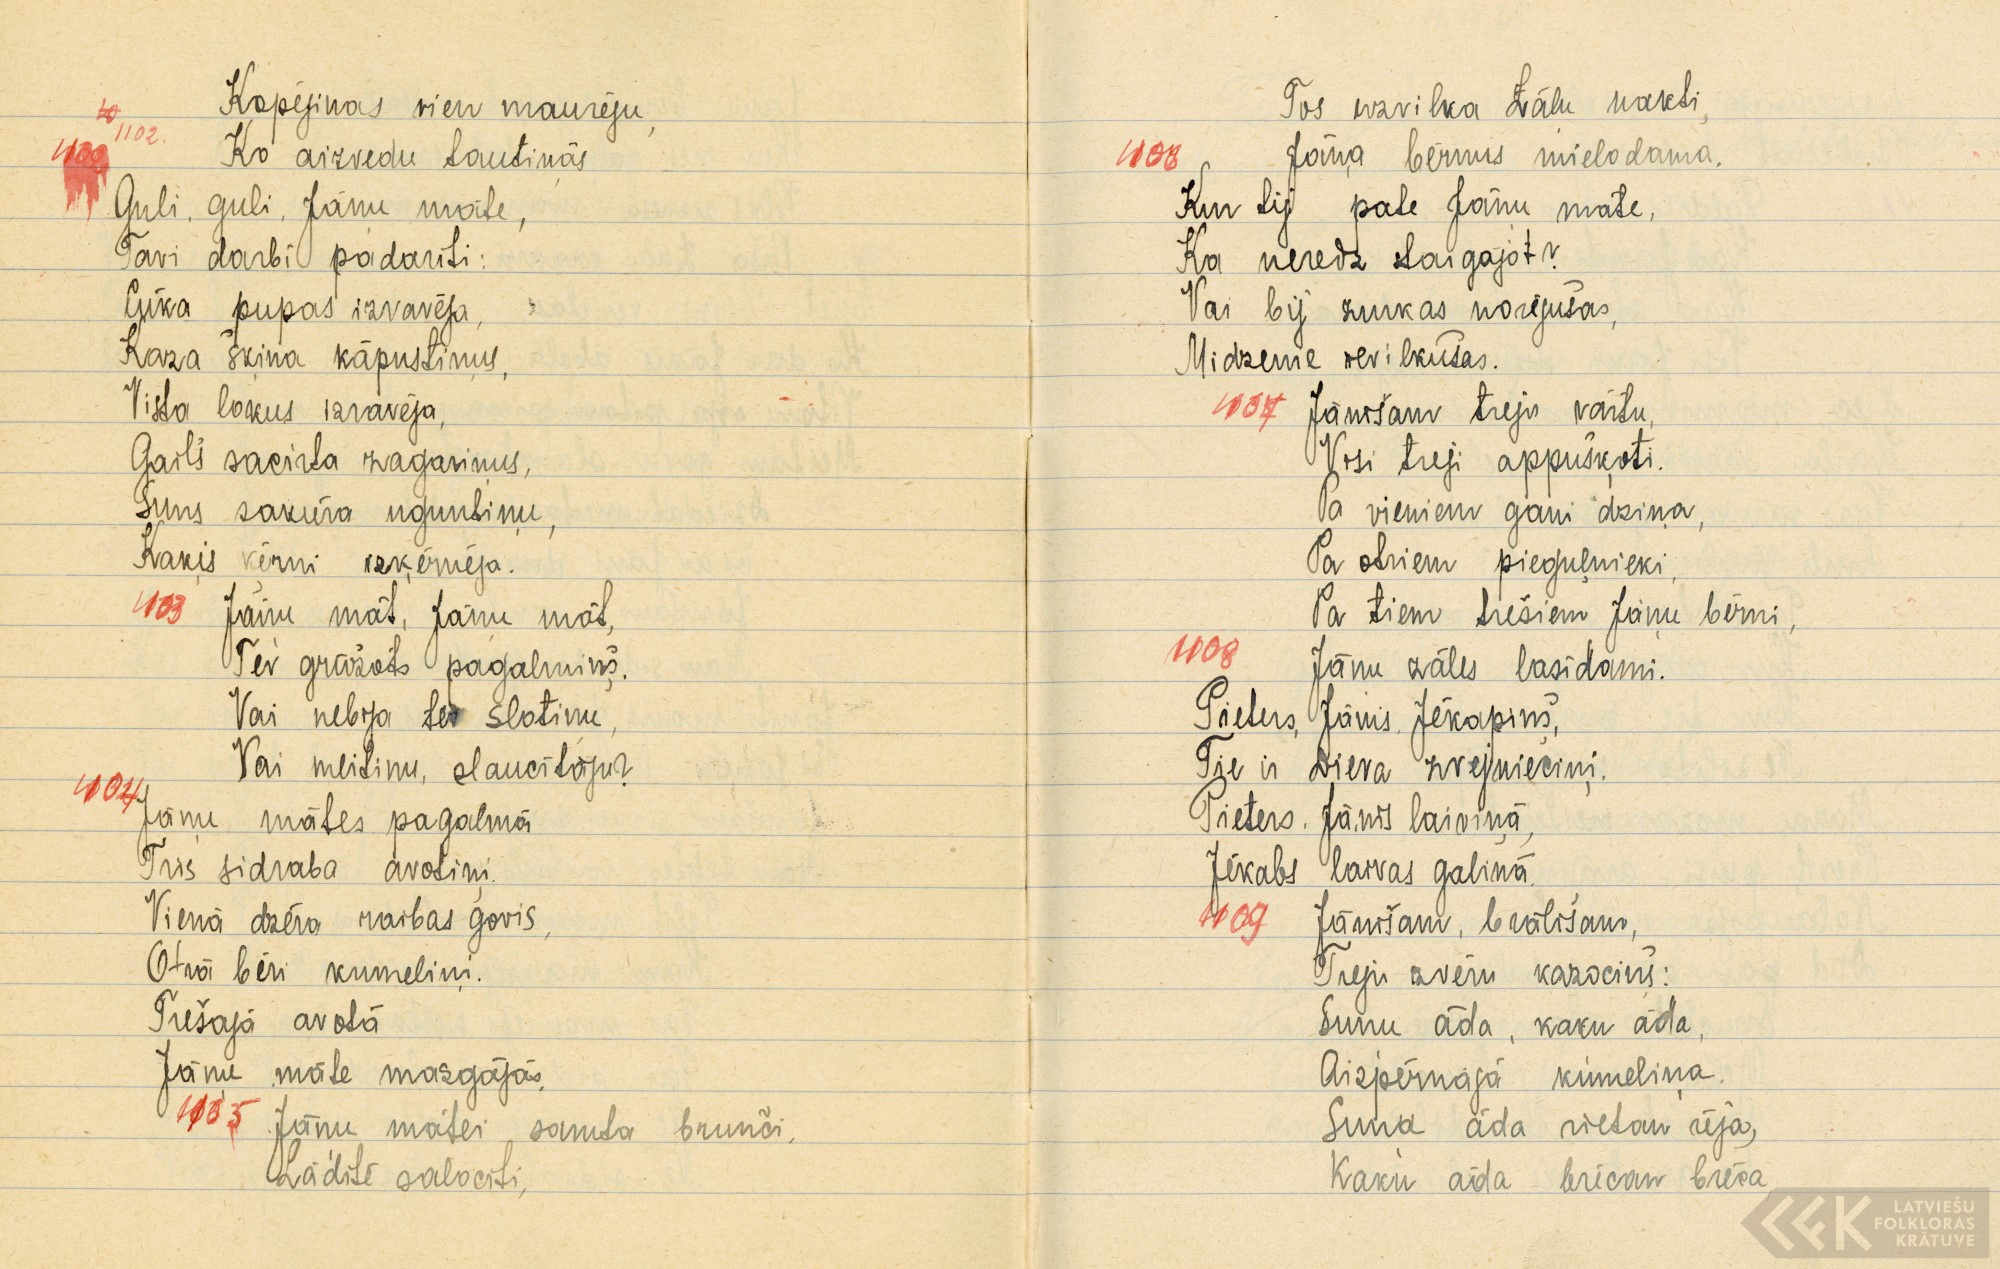 Kopējiņas vien maurēju,
1102.
1100
Ko aizvedu tautiņās
Guli, guli, Jāņu māte,
Tavi darbi padarīti:
Cūka pupas izravēja,
Kaza šķina kāpustiņus,
Vista lokus izravēja,
Gails sacirta zagariņus,
Suns sakūra uguntiņu,
Kaķis ķērni izķērnēja.
1103 Jāņu māt, Jāņu māt,
Tev grūžots pagalmiņš.
Vai nebija tev slotiņu,
Vai meitiņu, slaucītāju?
1104
Jāņu mātes pagalmā
Trīs sidraba avotiņi.
Vienā dzēra raibas govis,
Otrā bēri kumeliņi.
Trešajā avotā
Jāņu māte mazgājās.
1105 Jāņu mātei samta brunči,
Lādītē salocīti,
Tos izvilka Zāļu nakti,
1106 Jāņa bērnus mielodama.
Kur tij pate Jāņu māte,
Ka neredz staigājot?
Vai bij zurkas norijušas,
Midzenie ievilkušas.
1107 Jānīšam treju vārtu,
Visi treji appušķoti.
Pa vieniem gani dzina,
Pa otriem pieguļnieki,
Pa tiem trešiem Jāņu bērni,
1108 Jāņu zāles lasīdami.
Pieters, Jānis, Jēkapiņš,
Tie ir Dieva zvejnieciņi.
Pieters, Jānis laiviņā,
Jēkabs laivas galiņā.
1109 Jānīšam, brālīšam,
Treju zvēru kazociņš:
Sunu āda, kaķu āda,
Aizpērnajā kumeliņa.
Suņa āda rietan rēja,
Kaķu āda brēcan brēca
LATVIEŠU
FOLKLORAS
KRĀTUVE